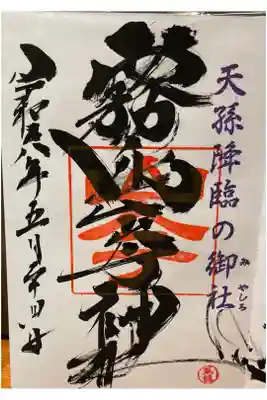 天孫降臨の御社
み やしろ
霧島岑神社
令和 年五月 日